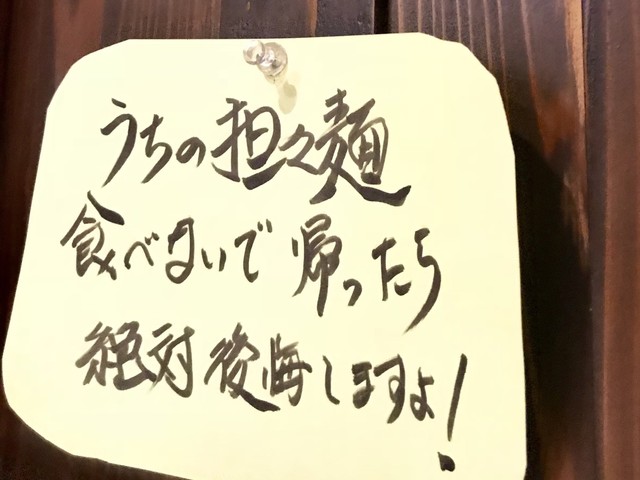 うちの担々麺
食べないで帰ったら
絶対後悔しますよ!